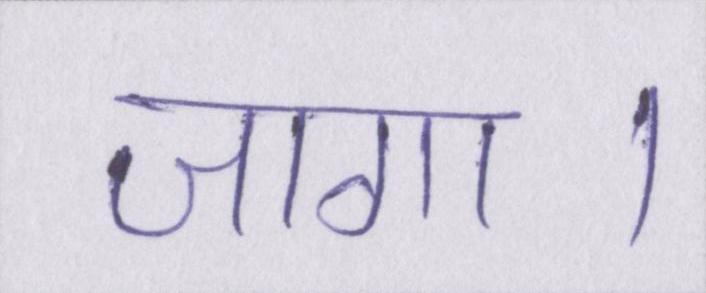 जागा ।